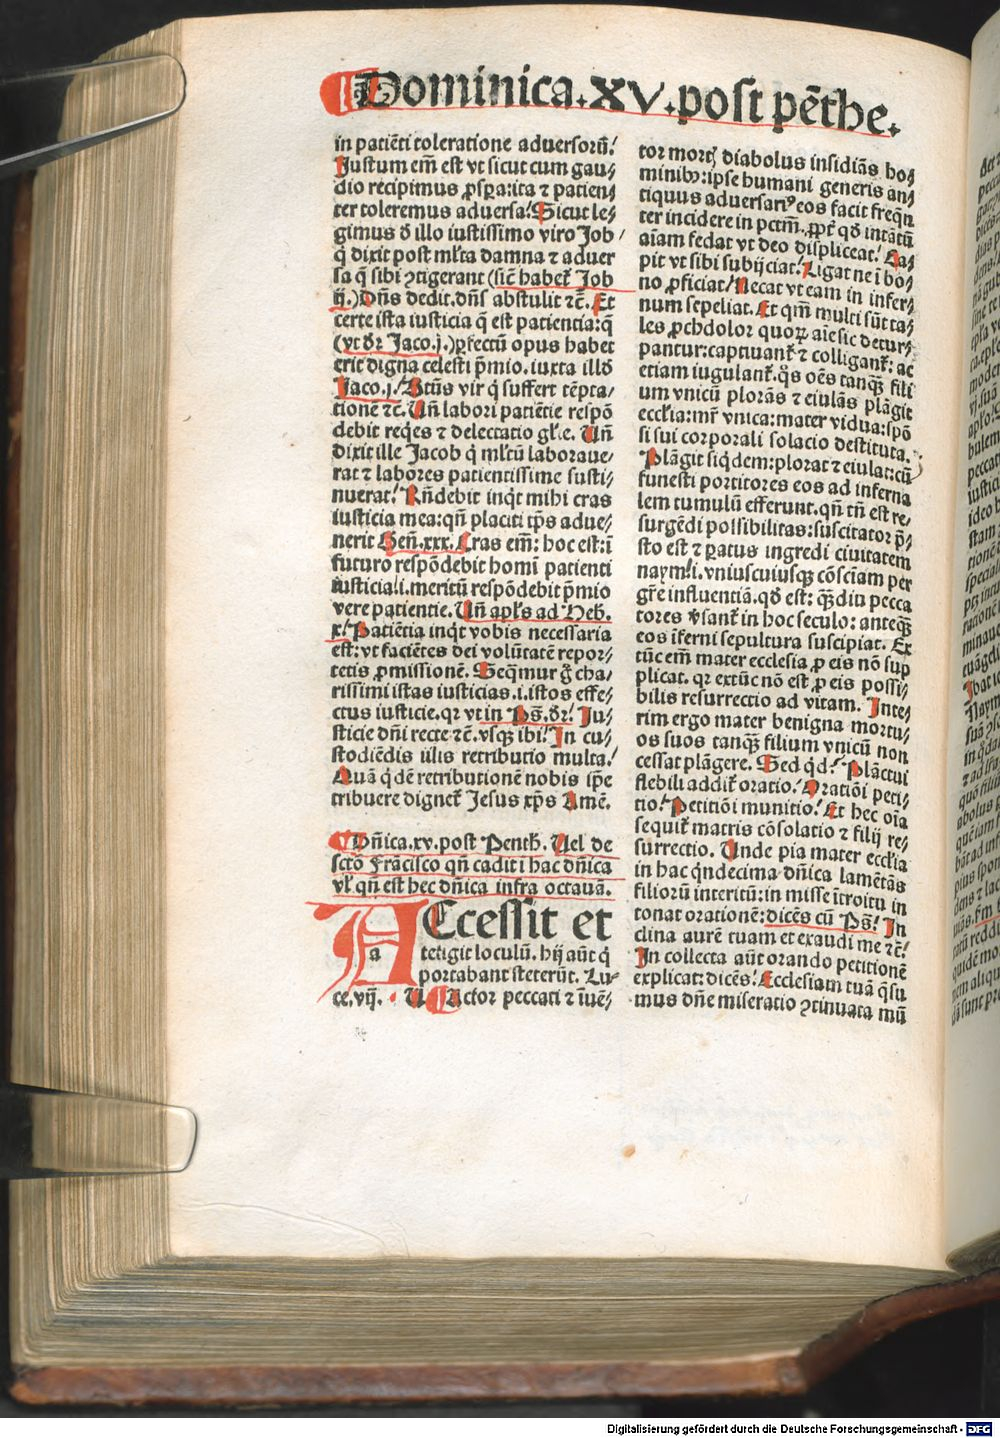 Dominica.XV.post pēthe.
in patiēti toleratione aduersorū.
Justum em̄ est vt sicut cum gau⸗
dio recipimus ꝓspꝑa:ita ⁊ patien⸗
ter toleremus aduersa. Sicut le⸗
gimus ō illo iustissimo viro Job
q̄ dixit post ml̄ta damna ⁊ aduer
sa q̄ sibi ꝯtigerant (sic̄ habet̄ Job
ij.) Dn̄s dedit.dn̄s abstulit ⁊c̄. Et
certe ista iusticia q̄ est patientia:q̄
(vt dr̄ Jaco.j.)ꝑfectū opus habet
erit digna celesti p̄mio.iuxta illō
Jaco.j. Btūs vir q̄ suffert tēpta⸗
tionē ⁊c̄. Un̄ labori patiētie respō
debit reqēs ⁊ delectatio gl̄e. Un̄
dixit ille Jacob q̄ ml̄tū laboraue⸗
rat ⁊ labores patientissime susti⸗
nuerat. Rn̄debit inqt mihi cras
iusticia mea:qn̄ placiti tp̄s adue⸗
nerit Gen̄.xxx. Cras em̄: hoc est:ī
futuro respōdebit homī patienti
iusticia.i.meritū respōdebit p̄mio
vere patientie. Un̄ apl̄s ad Heb.
x. Patiētia inqt vobis necessaria
est:vt faciētes dei volūtatē repor⸗
tetis ꝓmissionē. Seqmur g̊ cha⸗
rissimi istas iusticias.i.istos effe⸗
ctus iusticie.qr vt in Ps̄.dr̄. Ju⸗
sticie dn̄i recte ⁊c̄.vsqꝫ ibi. In cu⸗
stodiēdis illis retributio multa.
Quā q̇dē retributionē nobis ip̄e
tribuere dignet̄ Jesus xp̄s Amē.
Dn̄ica.xv.post Penth. Uel de
sctō Frācisco qn̄ cadit ī hac dn̄ica
vl̄ qn̄ est hec dn̄ica infra octauā.
ACcessit et
a tetigit loculū. hij aūt q̇
portabant steterūt. Lu⸗
ce.vij. Actor peccati ⁊ īuē⸗
tor mortꝭ diabolus insidiās ho⸗
minibꝰ:ipse humani generis an⸗
tiquus aduersariꝰ eos facit freqn̄
ter incidere in pctm̄.ꝓpt̄ qō intātū
aīam fedat vt deo displiceat. Ca⸗
pit vt sibi subijciat. Ligat ne ī bo⸗
no ꝓficiat. Necat vt eam in infer⸗
num sepeliat. Et qm̄ multi sūt ta⸗
les ꝓchdolor quoꝝ aīe sic detur⸗
pantur:captiuant̄ ⁊ colligant̄: ac
etiam iugulant̄.q̇s oēs tanqꝫ fili
um vnicū plorās ⁊ eiulās plāgit
eccl̄ia:mr̄ vnica:mater vidua:spō
si sui corporali solacio destituta.
Plāgit siqdem:plorat ⁊ eiulat:cū
funesti portitores eos ad inferna
lem tumulū efferunt.qn̄ tn̄ est re⸗
surgēdi possibilitas:suscitator p̄⸗
sto est ⁊ ꝑatus ingredi ciuitatem
naym.i.vniuscuiusqꝫ cōsciam per
gr̄e influentiā.qō est: qꝫdiu pecca
tores v̄sant̄ in hoc seculo: anteqꝫ
eos īferni sepultura suscipiat. Ex
tūc em̄ mater ecclesia ꝓ eis nō sup
plicat. qr extūc nō est ꝓ eis possi⸗
bilis resurrectio ad vitam. Inte⸗
rim ergo mater benigna mortu⸗
os suos tanqꝫ filium vnicū non
cessat plāgere. Sed q̇d. Plāctui
flebili addit̄ oratio. Oratiōi peti⸗
tio. Petitiōi munitio. Et hec oīa
sequit̄ matris cōsolatio ⁊ filij re⸗
surrectio. Unde pia mater eccl̄ia
in hac q̇ndecima dn̄ica lamētās
filiorū interitū:in misse ītroitu in
tonat orationē:dicēs cū Ps̄. In
clina aurē tuam et exaudi me ⁊c̄.
In collecta aūt orando petitionē
explicat:dicēs. Ecclesiam tuā q̄su
mus dn̄e miseratio ꝯtinuata mū
Digitalisierung gefördert durch die Deutsche Forschungsgemeinschaft - DFG